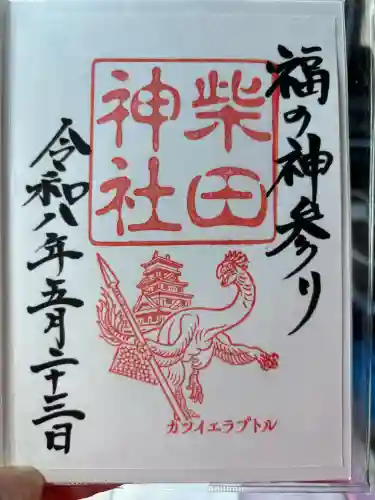 福の神参り
柴田
神社
令和八年五月二十三日
カツイエラプトル